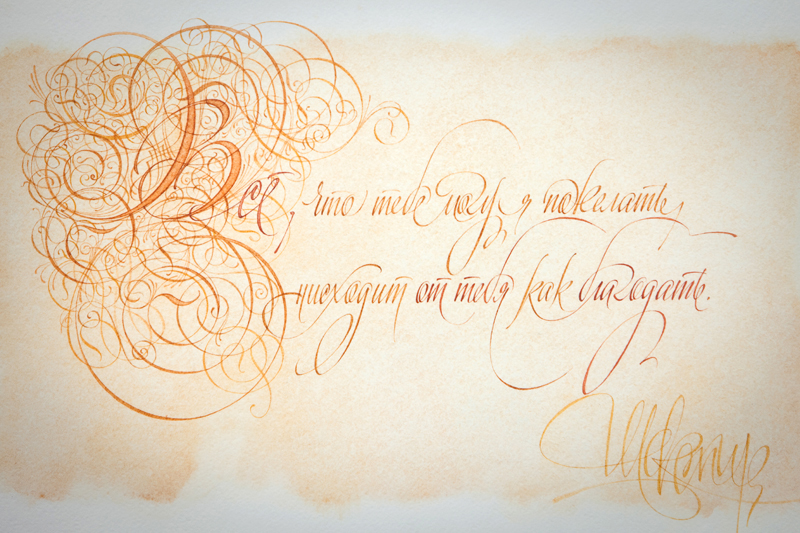 Всё, что тебе могу я пожелать,
нисходит от тебя как благодать.